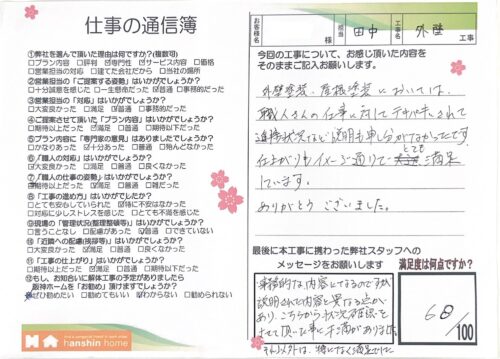 仕事の通信簿
①弊社を選んで頂いた理由は何ですか?(複数可)
□プラン内容 □評判 □専門性 □サービス内容 □価格
□営業担当の対応 □建てた会社だから □当社の場所
②営業担当の「ご提案する姿勢」はいかがでしょうか?
□十分誠意を感じた □一生懸命だった □普通 □事務的だった
③営業担当の「対応」はいかがでしょうか?
□大変良かった □満足 □普通 □事務的だった
④ご提案させて頂いた「プラン内容」はいかがでしょうか?
□期待以上だった □満足 □普通 □期待以下だった
⑤プラン内容に「専門家の意見」はありましたでしょうか?
□かなりあった □十分あった □普通 □殆んどなかった
⑥「職人の対応」はいかがでしょうか?
□大変良かった □満足 □普通 □良くなかった
⑦「職人の仕事の姿勢」はいかがでしょうか?
期待以上だった □満足 □普通 □雑だった
⑧「工事の進め方」はいかがでしたか?
□とても安心していられた □特に不安はなかった
□対応にストレスを感じた □とても不満を感じた
⑨現場の「管理状況(整理整頓等)」はいかがでしょうか?
□言うことなし □配慮があった □普通 □できていない
⑩「近隣への配慮(挨拶等)」はいかがでしょうか?
□大変良かった □満足 □普通 □良くなかった
⑪「工事の仕上がり」はいかがでしょうか?
□期待以上だった □満足 □普通 □期待以下だった
⑫もし、お知合いに解体工事の予定がありましたら
阪神ホームを「お勧め」頂けますでしょうか?
ぜひ勧めたい □勧めてもいい わからない □勧められない
hanshin home
お客様名
担当
田中
工事名
外壁
工事
今回の工事について、お感じ頂いた内容を
そのままご記入お願いします。
外壁塗装・屋根塗装においては、
職人さんの仕事に対してテキパキとされて
進捗状況など説明も申し分なかったです
仕上がりもイメージ通りで とても 満足
しています。
ありがとうございました。
最後に本工事に携わった弊社スタッフへの
メッセージをお願いします
満足度は何点ですか?
事務的な内容になるのですが
説明された内容と異なる点が
あり、こちらから状況確認を
させて頂いた事に不満があります。
それ以外は、特になく満足でした
68
/100